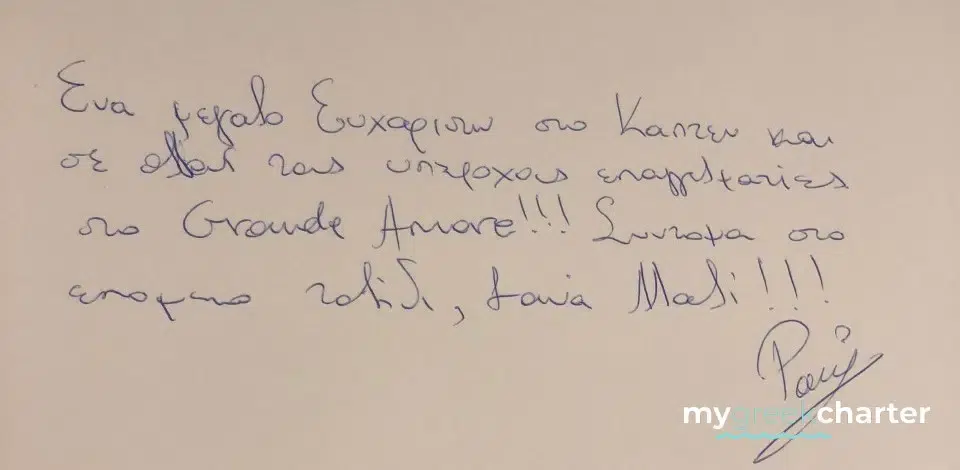 Ενα μεγαλο Ευχαριστω στο Καπτεν και
σε ολους τους υπεροχους επαγγελματιες
στο Grande Amore!!! Συντομα στο
επομενο ταξιδι, ξανα Μαζι!!!
mygreekcharter